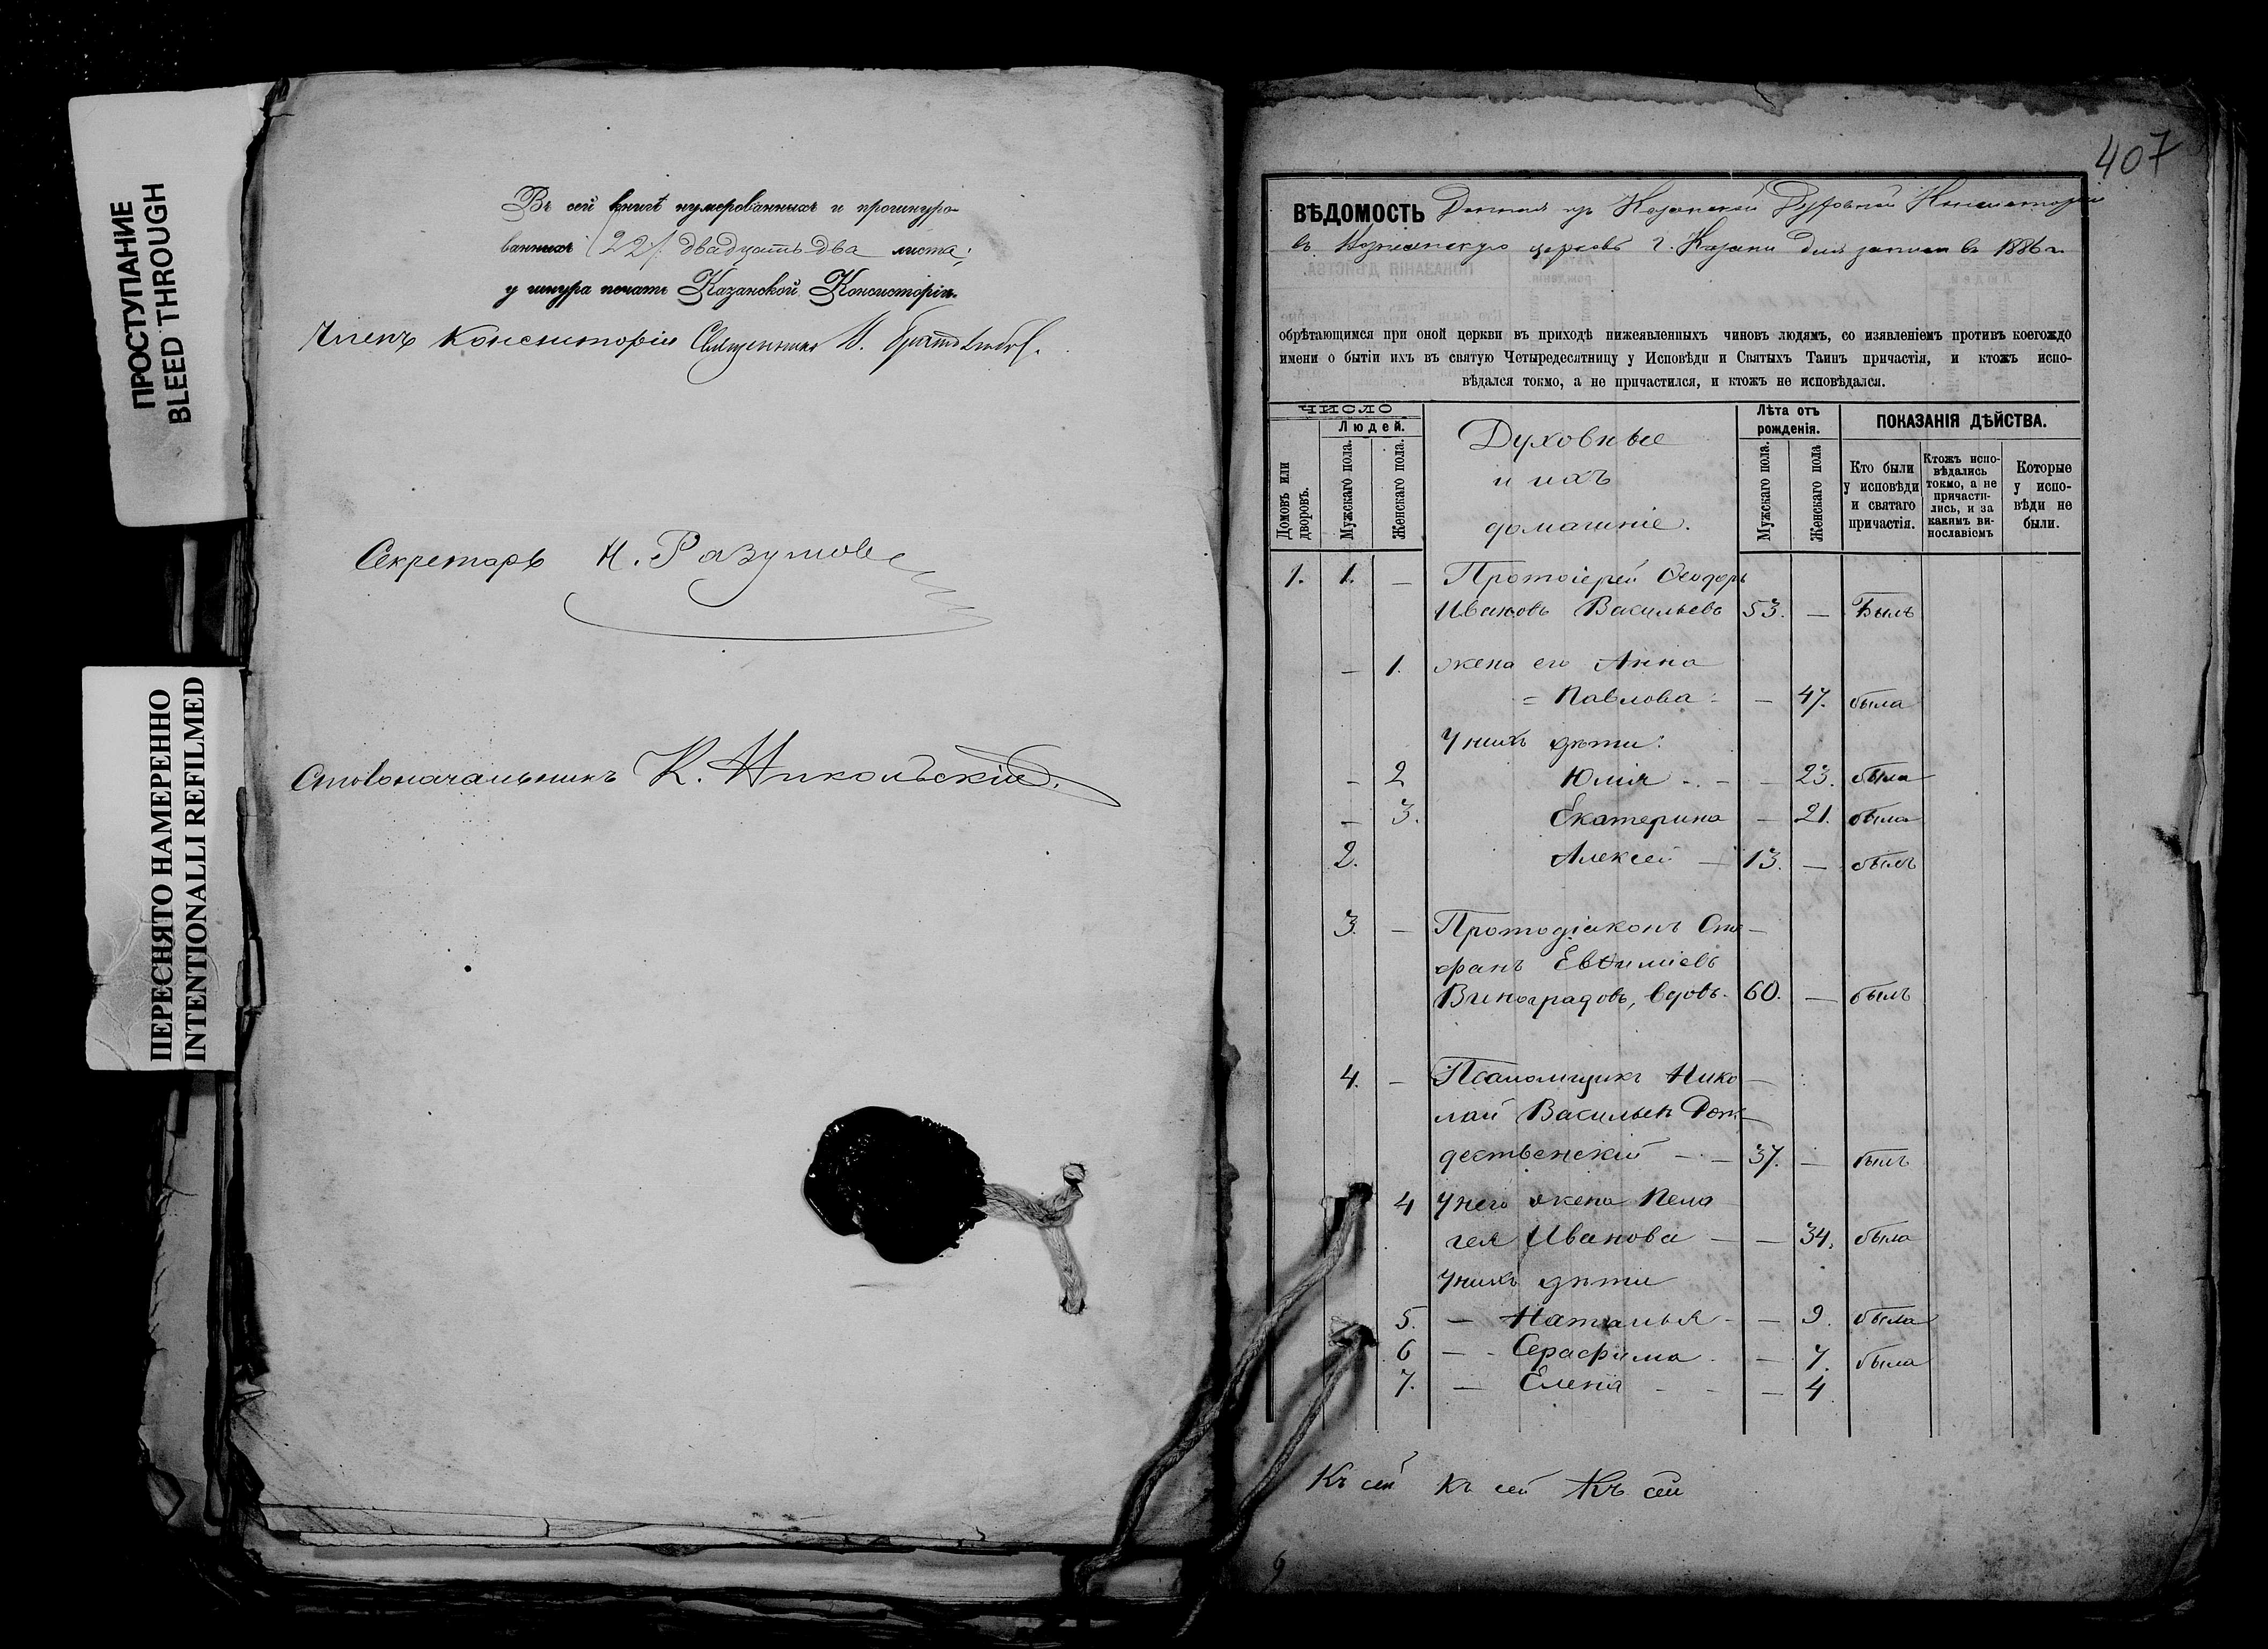 ПРОСТУПАНИЕ
BLEED THROUGH
ПЕРЕСНЯТО НАМЕРЕННО
INTENTIONALLI REFILMED
Въ сей книгѣ нумерованныхъ и прошнуро-
ванныхъ (22). двадцать два листа;
у шнура печать Казанской Консисторіи.
Членъ Консисторіи Священникъ
Секретарь Н. Разумовъ
Столоначальникъ К. Никольскій.
407
ВѢДОМОСТЬ Данная изъ Казанской Духовной Консисторіи
въ церковь г. Казани для записи въ 1886 г.
обрѣтающимся при оной церкви въ приходѣ нижеявленныхъ чиновъ людямъ, со изявленіемъ противъ коегождо
имени о бытіи ихъ въ святую Четыредесятницу у Исповѣди и Святыхъ Таинъ причастія, и ктожъ испо-
вѣдался токмо, а не причастился, и ктожъ не исповѣдался.
ЧИСЛО
Людей.
Домовъ или дворовъ.
Мужскаго пола.
Женскаго пола.
Духовные
и ихъ
домашніе.
Лѣта отъ рожденія.
Мужскаго пола.
Женскаго пола
ПОКАЗАНІЯ ДѢЙСТВА.
Кто были у исповѣди и святаго причастія.
Ктожъ испо-вѣдались токмо, а не причасти-лись, и за какимъ ви-нословіемъ
Которые у испо-вѣди не были.
1. 1. — Протоіерей Ѳеодоръ
Ивановъ Васильевъ 53. — Былъ
— 1. жена его Анна
= Павлова — 47. была
У нихъ дѣти:
— 2 Юлія — 23. была
— 3. Екатерина — 21. была
2. Алексей — 13. — былъ
3. — Протодіаконъ Сте-
фанъ Евѳиміевъ
Виноградовъ, вдовъ. 60. — былъ
4. — Псаломщикъ Нико-
лай Васильевъ Рож-
дественскій — 37. — былъ
4 У него жена Пела
гея Иванова — 34. была
У нихъ дѣти
5. — Наталья — 9. была
6 — Серафима — 7. была
7. — Елена — 4
Къ сей Къ сей Къ сей